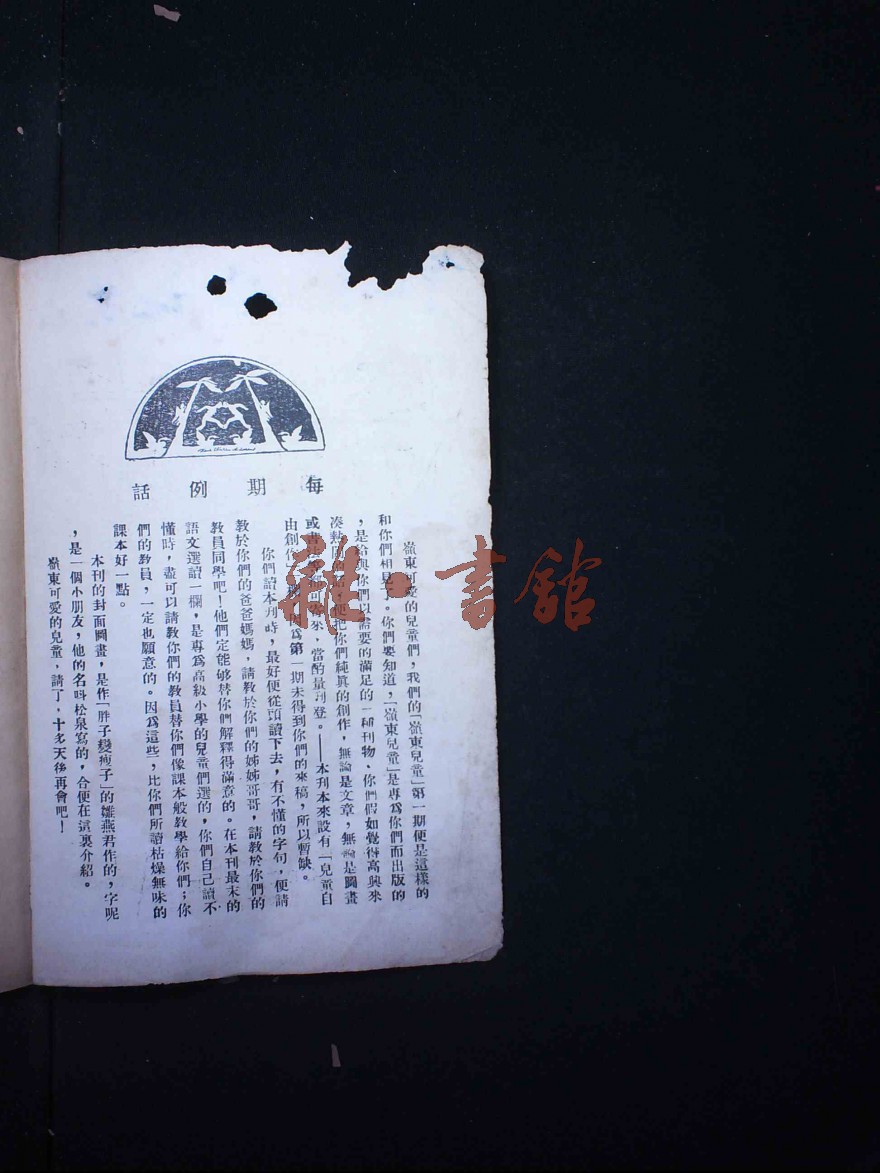 每期例話
嶺東可愛的兒童們，我們的「嶺東兒童」第一期便是這樣的
和你們相見了。你們要知道，「嶺東兒童」是專爲你們而出版的
，是給與你們以需要的滿足的一種刊物，你們假如覺得高興來
湊熱鬧的話，便把你們純眞的創作，無論是文章，無論是圖畫
或書法等都可寄來，當酌量刊登。——本刊本來設有「兒童自
由創作」欄，因爲第一期未得到你們的來稿，所以暫缺。
你們讀本刊時，最好便從頭讀下去，有不懂的字句，便請
教於你們的爸爸媽媽，請教於你們的姊姊哥哥，請教於你們的
教員同學吧！他們定能够替你們解釋得滿意的。在本刊最末的
語文選讀一欄，是專爲高級小學的兒童們選的，你們自己讀不
懂時，盡可以請教你們的教員替你們像課本般教學給你們；你
們的教員，一定也願意的。因爲這些，比你們所讀枯燥無味的
課本好一點。
本刊的封面圖畫，是作「胖子變瘦子」的雛燕君作的，字呢
，是一個小朋友，他的名呌松泉寫的，合便在這裏介紹。
嶺東可愛的兒童，請了，十多天後再會吧！
雜·書館